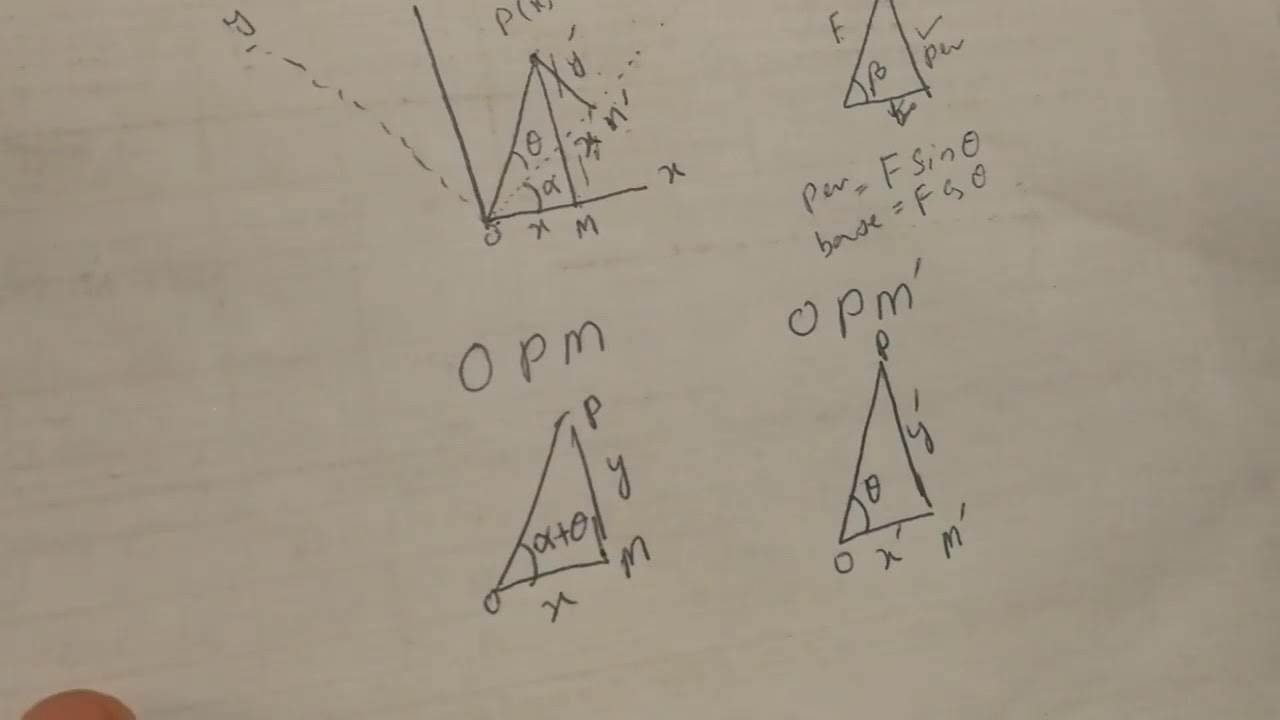 y'
P(x,
y'
M'
x'
θ
α
x
O x M
F
β
per
per = F Sin θ
base = F Cs θ
O P M
P
y
α+θ
M
O
x
O P M'
P
y'
θ
O x' M'